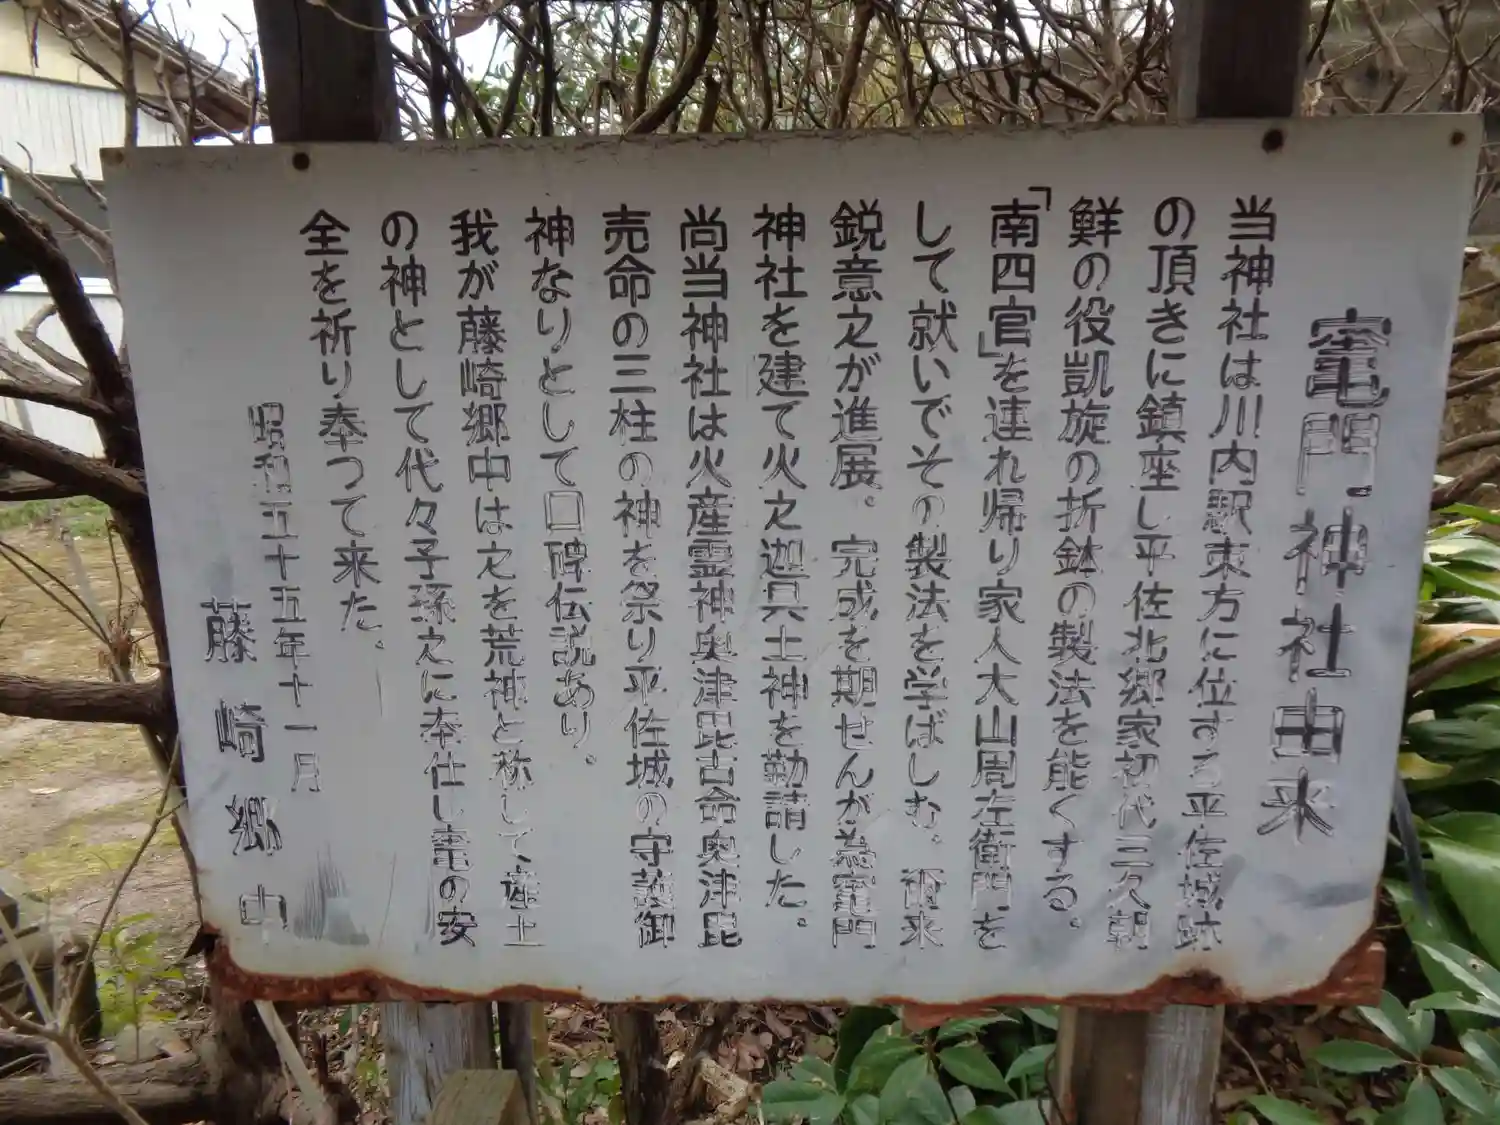 竃門神社由来
当神社は川内駅東方に位する平佐城跡
の頂きに鎮座し平佐北郷家初代三久朝
鮮の役凱旋の折鉢の製法を能くする。
「南四官」を連れ帰り家人大山周左衛門を
して就いでその製法を学ばしむ。爾来
鋭意之が進展。完成を期せんが為竃門
神社を建て火之迦具土神を勤請した。
尚当神社は火産霊神奥津毘古命奥津毘
売命の三柱の神を祭り平佐城の守護御
神なりとして口碑伝説あり。
我が藤崎郷中は之を荒神と称して産土
の神として代々子孫之に奉仕し竃の安
全を祈り奉つて来た。
昭和五十五年十一月
藤崎郷中